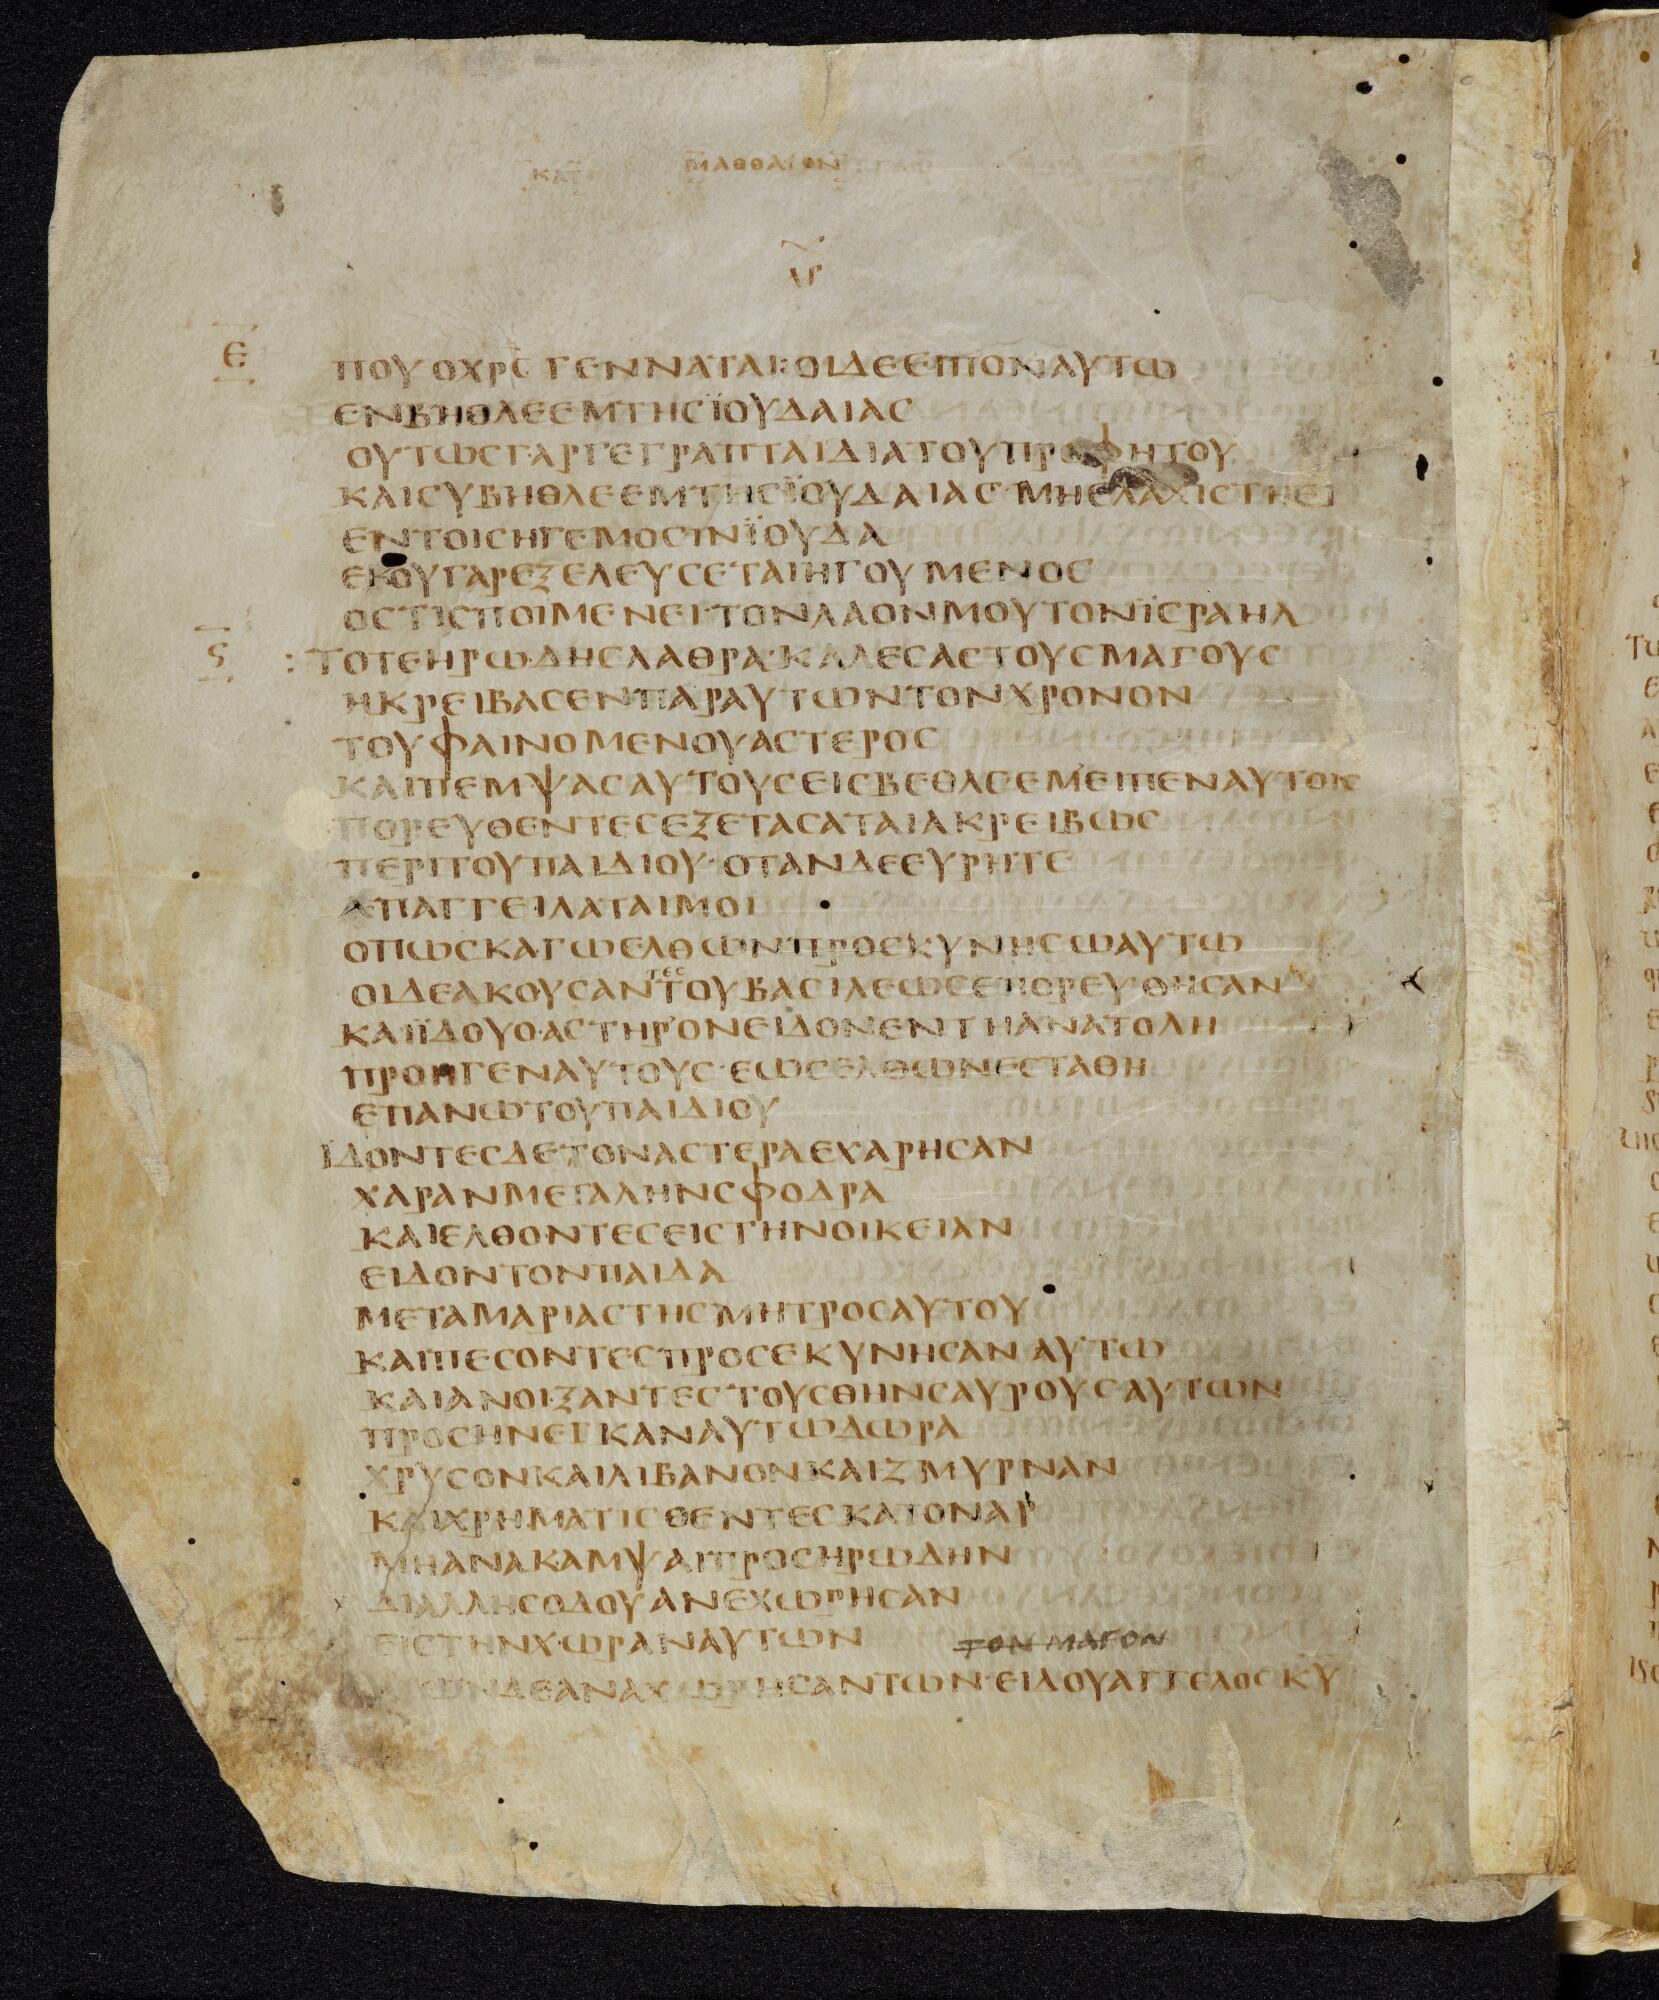 ΚΑΤ ΜΑΘΘΑΙΟΝ
Ε
ΠΟΥ Ο ΧΡΣ ΓΕΝΝΑΤΑΙ ΟΙ ΔΕ ΕΙΠΟΝ ΑΥΤΩ
ΕΝ ΒΗΘΛΕΕΜ ΤΗΣ ΪΟΥΔΑΙΑΣ
ΟΥΤΩΣ ΓΑΡ ΓΕΓΡΑΠΤΑΙ ΔΙΑ ΤΟΥ ΠΡΟΦΗΤΟΥ
ΚΑΙ ΣΥ ΒΗΘΛΕΕΜ ΤΗΣ ΪΟΥΔΑΙΑΣ· ΜΗ ΕΛΑΧΙΣΤΗ ΕΙ
ΕΝ ΤΟΙΣ ΗΓΕΜΟΣΙΝ ΪΟΥΔΑ
ΕΚ ΟΥ ΓΑΡ ΕΞΕΛΕΥΣΕΤΑΙ ΗΓΟΥΜΕΝΟΣ
ΟΣΤΙΣ ΠΟΙΜΕΝΕΙ· ΤΟΝ ΛΑΟΝ ΜΟΥ ΤΟΝ ΪΣΡΑΗΛ
Ϛ : ΤΟΤΕ ΗΡΩΔΗΣ ΛΑΘΡΑ· ΚΑΛΕΣΑΣ ΤΟΥΣ ΜΑΓΟΥΣ
ΗΚΡΕΙΒΑΣΕΝ ΠΑΡ ΑΥΤΩΝ ΤΟΝ ΧΡΟΝΟΝ
ΤΟΥ ΦΑΙΝΟΜΕΝΟΥ ΑΣΤΕΡΟΣ
ΚΑΙ ΠΕΜΨΑΣ ΑΥΤΟΥΣ ΕΙΣ ΒΕΘΛΕΕΜ ΕΙΠΕΝ ΑΥΤΟΙΣ
ΠΟΡΕΥΘΕΝΤΕΣ ΕΞΕΤΑΣΑΤΑΙ ΑΚΡΕΙΒΩΣ
ΠΕΡΙ ΤΟΥ ΠΑΙΔΙΟΥ· ΟΤΑΝ ΔΕ ΕΥΡΗΤΕ
ΑΠΑΓΓΕΙΛΑΤΑΙ ΜΟΙ
ΟΠΩΣ ΚΑΓΩ ΕΛΘΩΝ ΠΡΟΣΚΥΝΗΣΩ ΑΥΤΩ
ΟΙ ΔΕ ΑΚΟΥΣΑΝΤΕΣ ΤΟΥ ΒΑΣΙΛΕΩΣ ΕΠΟΡΕΥΘΗΣΑΝ
ΚΑΙ ΪΔΟΥ Ο ΑΣΤΗΡ ΟΝ ΕΙΔΟΝ ΕΝ ΤΗ ΑΝΑΤΟΛΗ
ΠΡΟΗΓΕΝ ΑΥΤΟΥΣ· ΕΩΣ ΕΛΘΩΝ ΕΣΤΑΘΗ
ΕΠΑΝΩ ΤΟΥ ΠΑΙΔΙΟΥ
ΪΔΟΝΤΕΣ ΔΕ ΤΟΝ ΑΣΤΕΡΑ ΕΧΑΡΗΣΑΝ
ΧΑΡΑΝ ΜΕΓΑΛΗΝ ΣΦΟΔΡΑ
ΚΑΙ ΕΛΘΟΝΤΕΣ ΕΙΣ ΤΗΝ ΟΙΚΕΙΑΝ
ΕΙΔΟΝ ΤΟΝ ΠΑΙΔΑ
ΜΕΤΑ ΜΑΡΙΑΣ ΤΗΣ ΜΗΤΡΟΣ ΑΥΤΟΥ
ΚΑΙ ΠΕΣΟΝΤΕΣ ΠΡΟΣΕΚΥΝΗΣΑΝ ΑΥΤΩ
ΚΑΙ ΑΝΟΙΞΑΝΤΕΣ ΤΟΥΣ ΘΗΝΣΑΥΡΟΥΣ ΑΥΤΩΝ
ΠΡΟΣΗΝΕΓΚΑΝ ΑΥΤΩ ΔΩΡΑ
ΧΡΥΣΟΝ ΚΑΙ ΛΙΒΑΝΟΝ ΚΑΙ ΖΜΥΡΝΑΝ
ΚΑΙ ΧΡΗΜΑΤΙΣΘΕΝΤΕΣ ΚΑΤ ΟΝΑΡ
ΜΗ ΑΝΑΚΑΜΨΑΙ ΠΡΟΣ ΗΡΩΔΗΝ
ΔΙ ΑΛΛΗΣ ΟΔΟΥ ΑΝΕΧΩΡΗΣΑΝ
ΕΙΣ ΤΗΝ ΧΩΡΑΝ ΑΥΤΩΝ ΤΟΝ ΜΑΓΟΝ
ΩΝ ΔΕ ΑΝΑΧΩΡΗΣΑΝΤΩΝ· ΕΙΔΟΥ ΑΓΓΕΛΟΣ ΚΥ